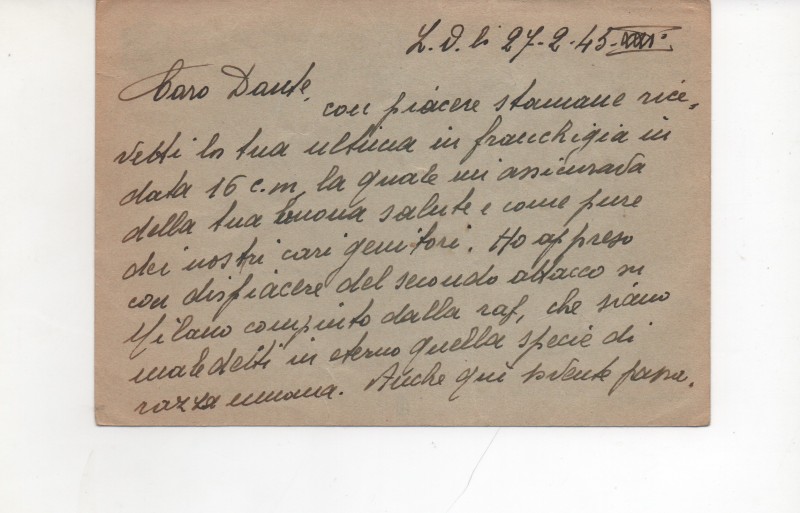 L. D. li 27-2-45-XXIII°
Caro Dante,
con piacere stamane rice,
vetti la tua ultima in franchigia in
data 16 c.m, la quale mi assicurava
della tua buona salute e come pure
dei nostri cari genitori. Ho appreso
con dispiacere del secondo attacco su
Milano compiuto dalla raf, che siano
maledetti in eterno quella specie di
razza umana. Anche qui sovente passa,